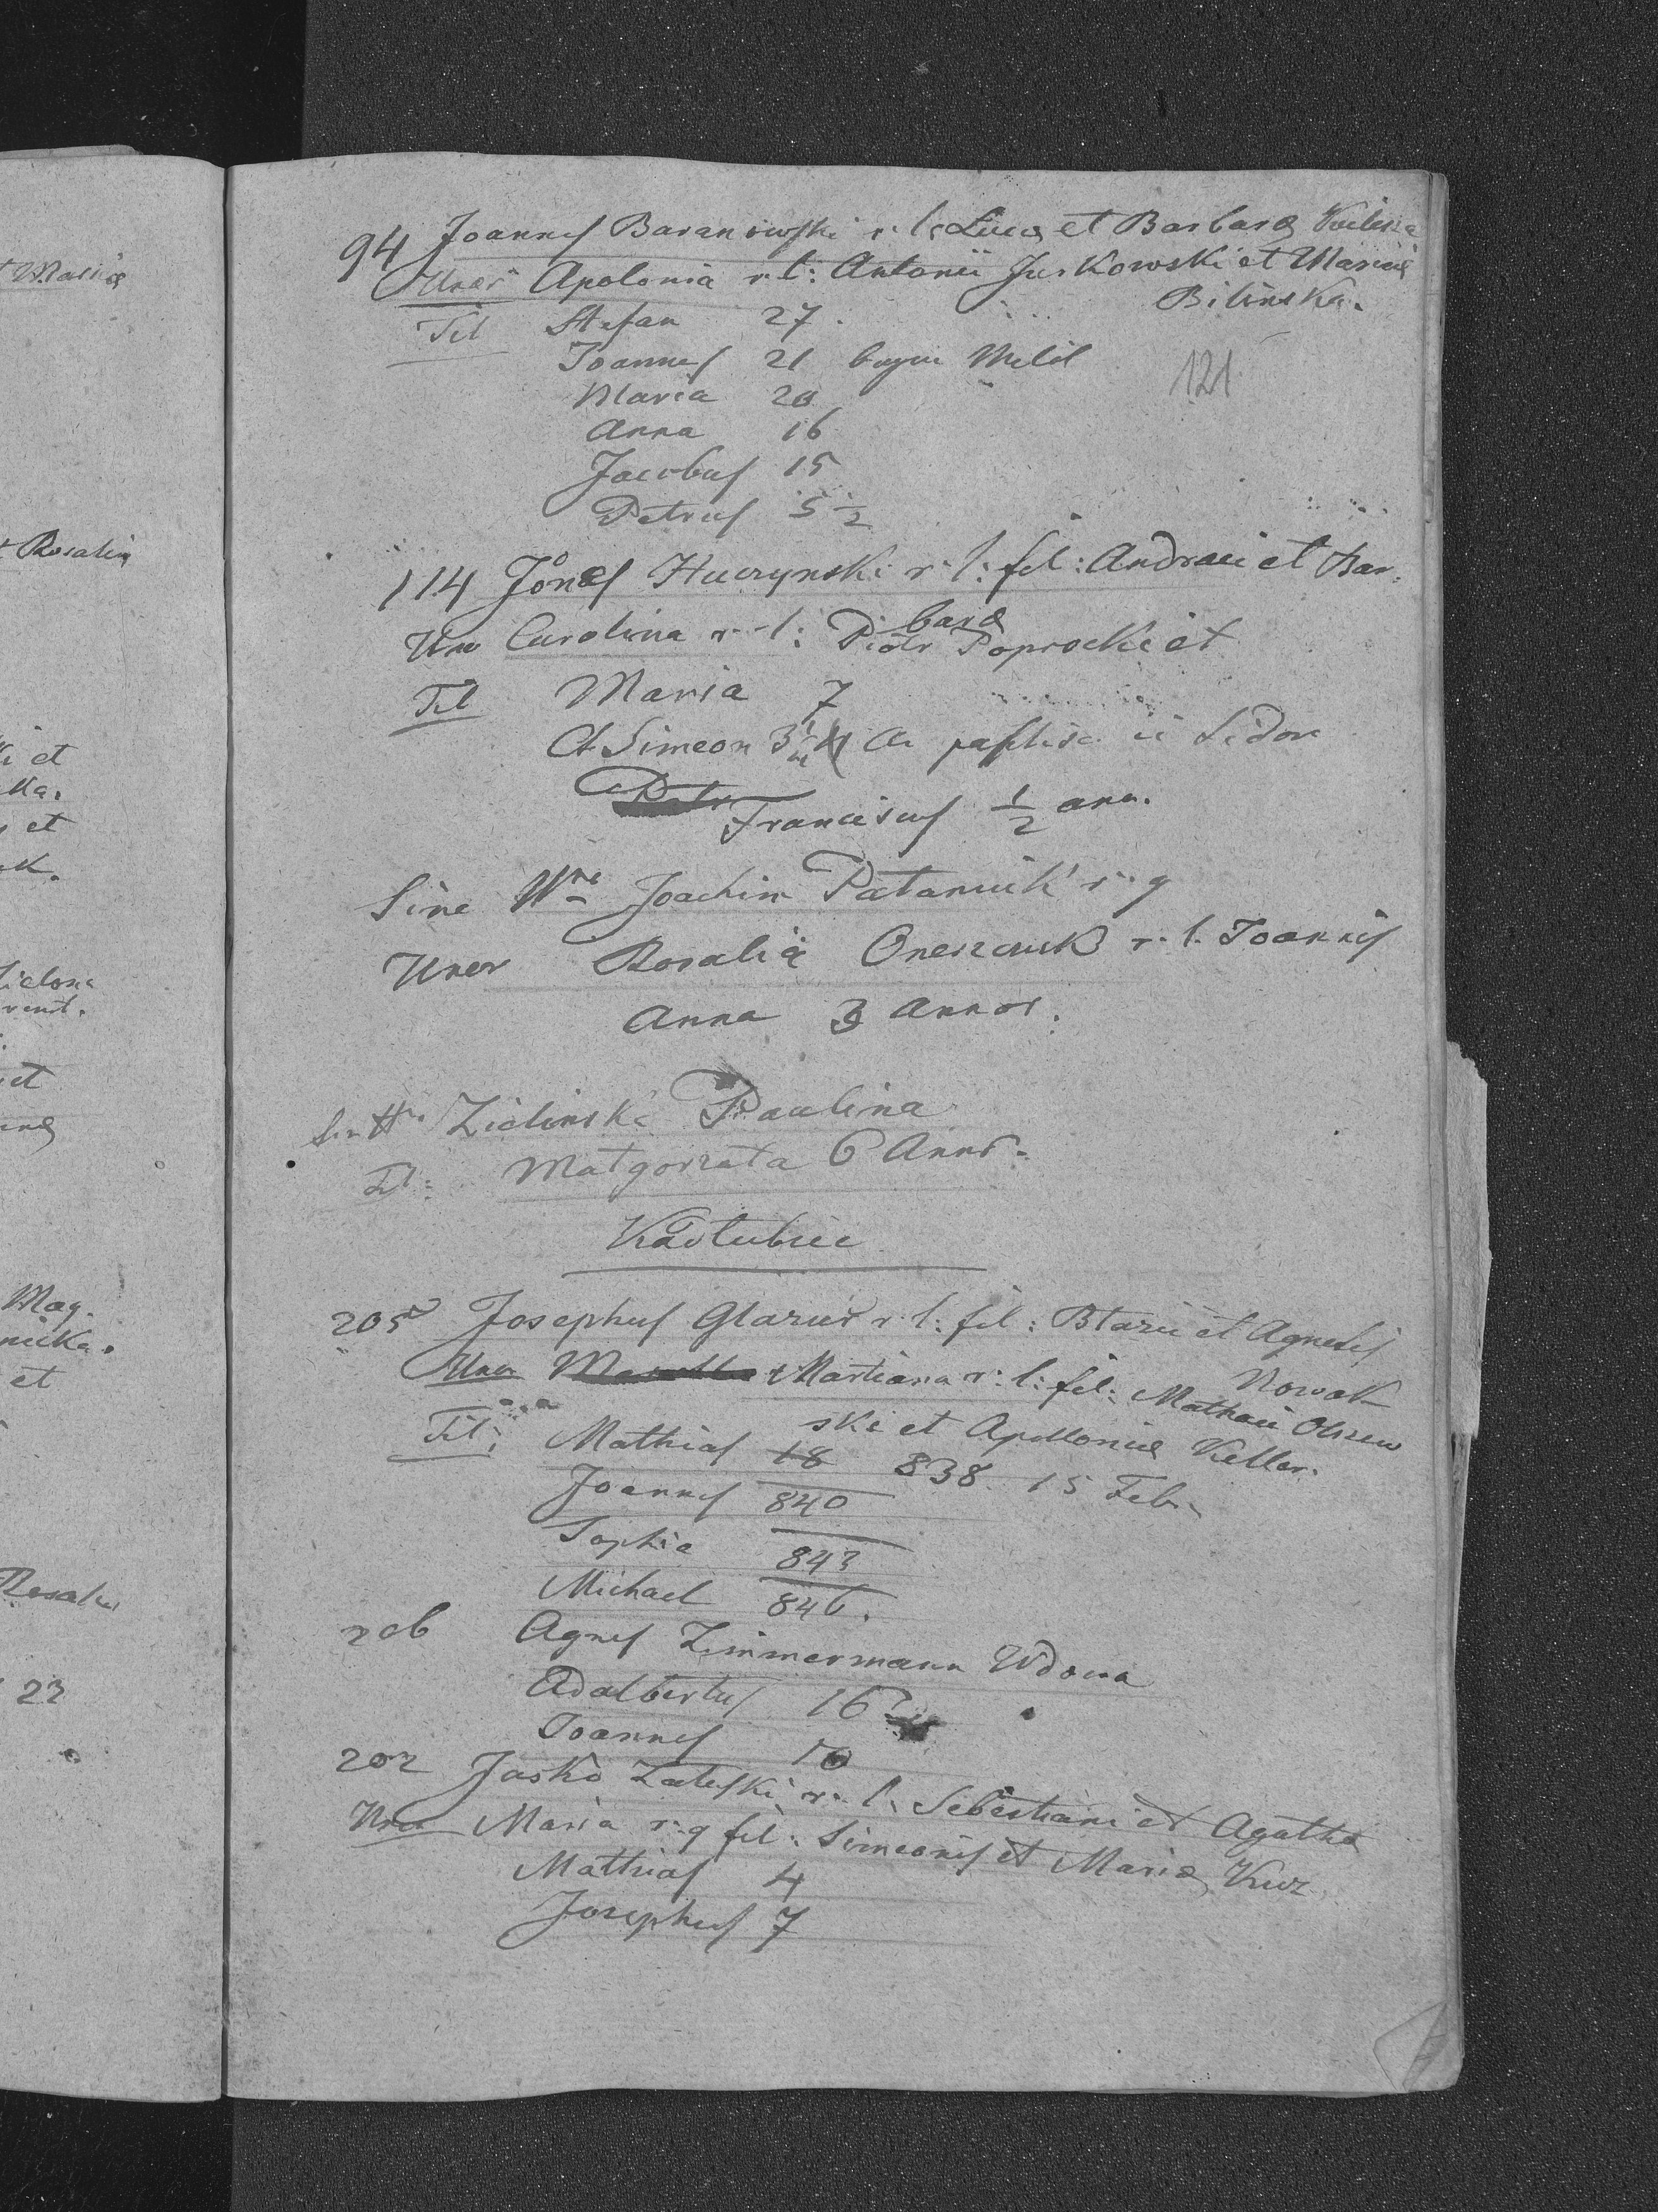 94 Joannes Baranowski r. l: Lucæ et Barbaræ
Uxor Apolonia r. l: Antonii Jurkowski et Mariæ
Bilinska.
Fil Stefan 27.
Joannes 21 Melil
121
Maria 20
Anna 16
Jacobus 15
Petrus 5 1/2
114 Jónes Huczynski r: l: fil: Andraei et Bar,
baræ
Uxo Carolina r. l: Piotr Poprocki et
Fil Maria 7
Simeon 3
Franciscus 1/2 ann.
Sine Nro Joachim Patamuik r: g
Uxor Rosalia Oneszcuk r. l. Joannis
Anna 3 Annor.
Zielinska Paulina
Fil: Małgorzata 6 Annr.
Kadłubice
205 Josephus Glazur r. l: fil: Blazii et Agnetis
Nowak
Uxor Martiana r: l: fil: Mathaei Olszew
ski et Apolloniæ Keller.
Fil: Mathias 18 838 15 Feb.
Joannes 840
Sophia 843
Michael 846.
206 Agnes Zimmermann Wdowa
Adalbertus 16
Joannes 10
202 Jasko Zaleski r. l. Sebestiani et Agatha
Uxor Maria r. g fil: Simeonis et Mariæ Kuz
Mathias 4
Josephus 7
t Mariæ
t Rosalia
i et
ka.
et
k.
et
Mag.
nicka.
et
Rosalia
23